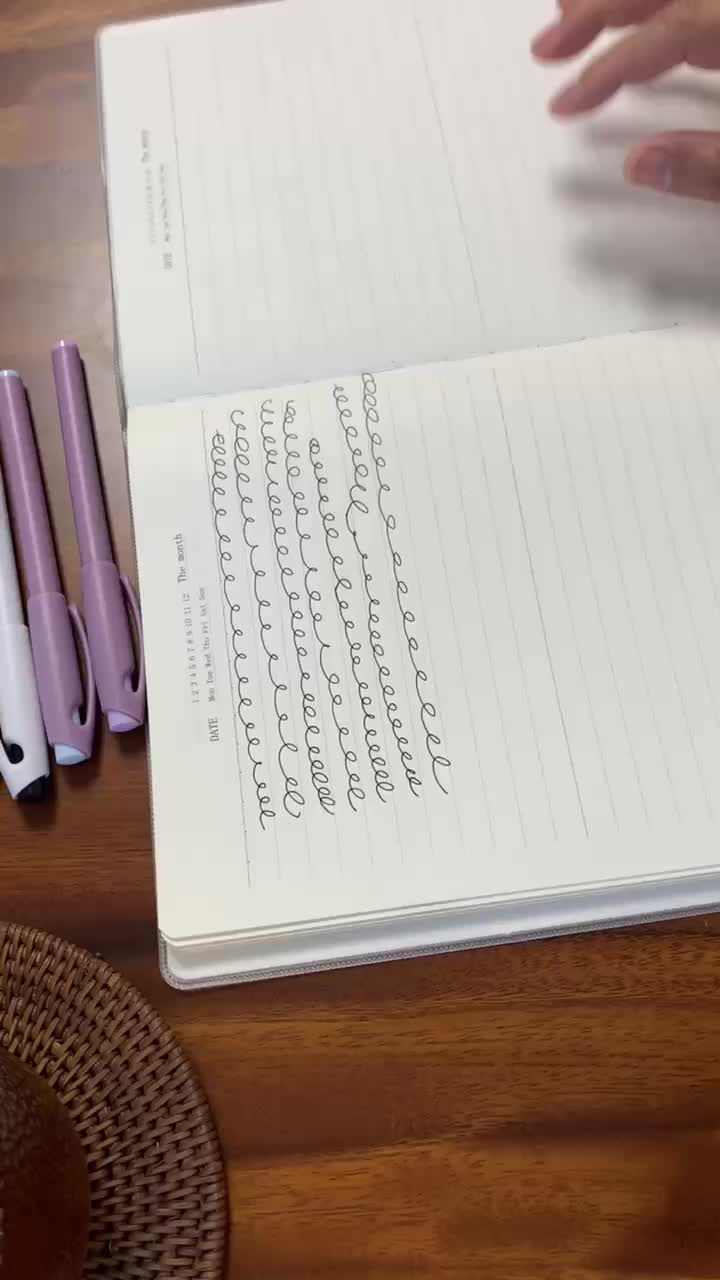 The month
1 2 3 4 5 6 7 8 9 10 11 12
DATE Mon Tue Wed Thu Fri Sat Sun
The month
DATE